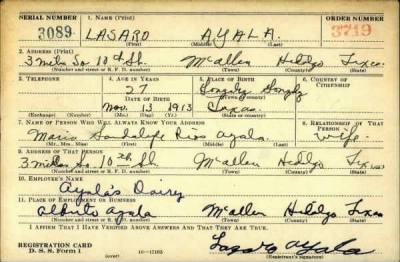 SERIAL NUMBER 1. NAME (Print) ORDER NUMBER
3089 LASARO AYALA 13719
(First) (Middle) (Last)
2. ADDRESS (Print)
3 miles So. 10th St. McAllen Hidalgo Texas
(Number and street or R. F. D. number) (Town) (County) (State)
3. TELEPHONE 4. AGE IN YEARS 5. PLACE OF BIRTH 6. COUNTRY OF CITIZENSHIP
27 Gonzales Gonzales
DATE OF BIRTH (Town or county)
Nov. 13 1913 Texas
(Exchange) (Number) (Mo.) (Day) (Yr.) (State or country)
7. NAME OF PERSON WHO WILL ALWAYS KNOW YOUR ADDRESS 8. RELATIONSHIP OF THAT PERSON
Maria Guadalupe Rios Ayala wife
(Mr., Mrs., Miss) (First) (Middle) (Last)
9. ADDRESS OF THAT PERSON
3 miles So. 10th St. McAllen Hidalgo Texas
(Number and street or R. F. D. number) (Town) (County) (State)
10. EMPLOYER'S NAME
Ayala's Dairy
11. PLACE OF EMPLOYMENT OR BUSINESS
Alberto Ayala McAllen Hidalgo Texas
(Number and street or R. F. D. number) (Town) (County) (State)
I AFFIRM THAT I HAVE VERIFIED ABOVE ANSWERS AND THAT THEY ARE TRUE.
REGISTRATION CARD
D. S. S. Form 1 (over) 16—17105 Lazaro Ayala
(Registrant's signature)